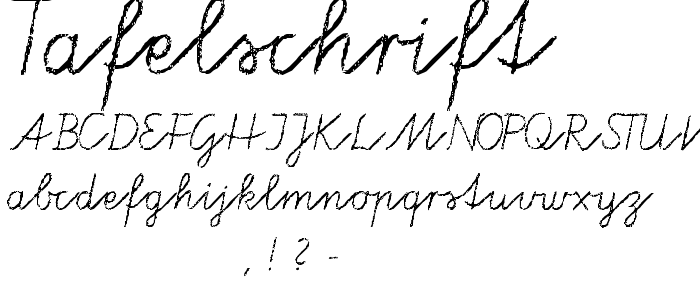 Tafelschrift
ABCDEFGHIJKLMNOPQRSTUV
abcdefghijklmnopqrstuvwxyz
, ! ? -